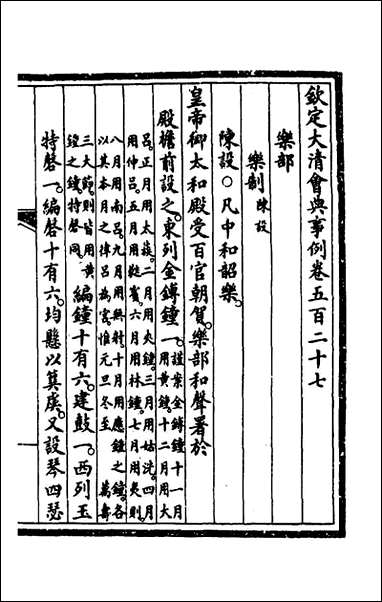 欽定大清會典事例卷五百二十七
樂部
樂制 陳設
陳設○凡中和韶樂。
皇帝御太和殿受百官朝賀。樂部和聲署於
殿檐前設之。東列金鎛鐘一。謹案金鎛鐘十一月用黃鐘。十二月用大
呂。正月用太蔟。二月用夾鐘。三月用姑洗。四月用仲呂。五月用蕤賓。六月用林鐘。七月用夷則。
八月用南呂。九月用無射。十月用應鐘之鐘。各以其本月之律呂為宮。惟元旦冬至 萬壽
三大節。則皆用黃鐘之鐘。特磬同。編鐘十有六。建鼓一。西列玉
特磬一。編磬十有六。均懸以簨虡。又設琴四瑟